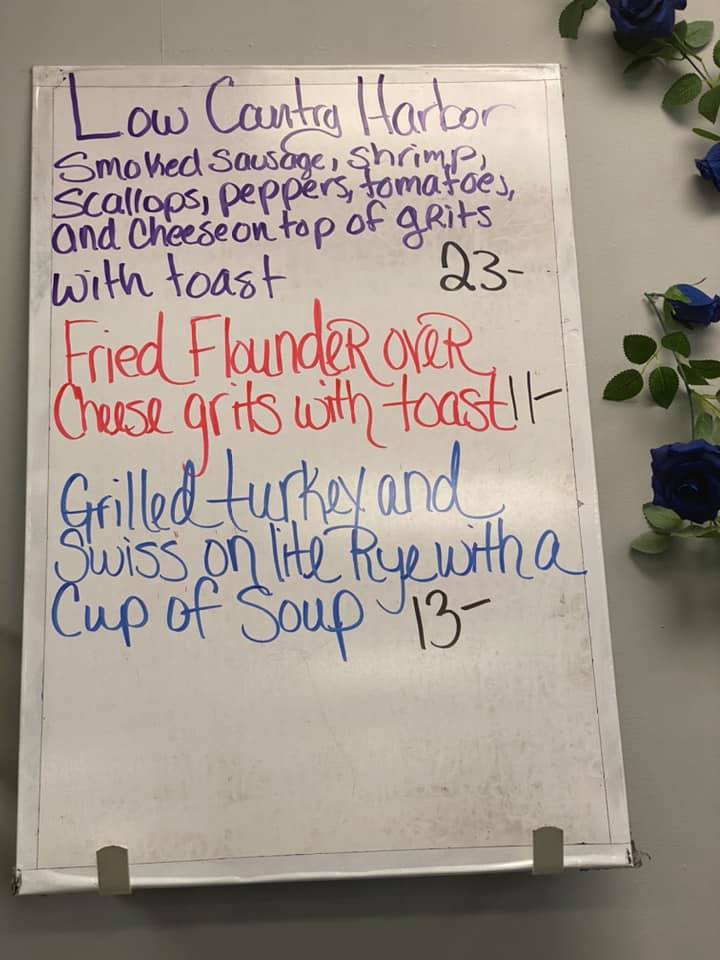 Low Country Harbor
Smoked Sausage, Shrimp,
Scallops, peppers, tomatoes,
and Cheese on top of gRits
with toast 23-
Fried FloundeR oveR
Cheese grits with toast 11-
Grilled turkey and
Swiss on lite Rye with a
Cup of Soup 13-